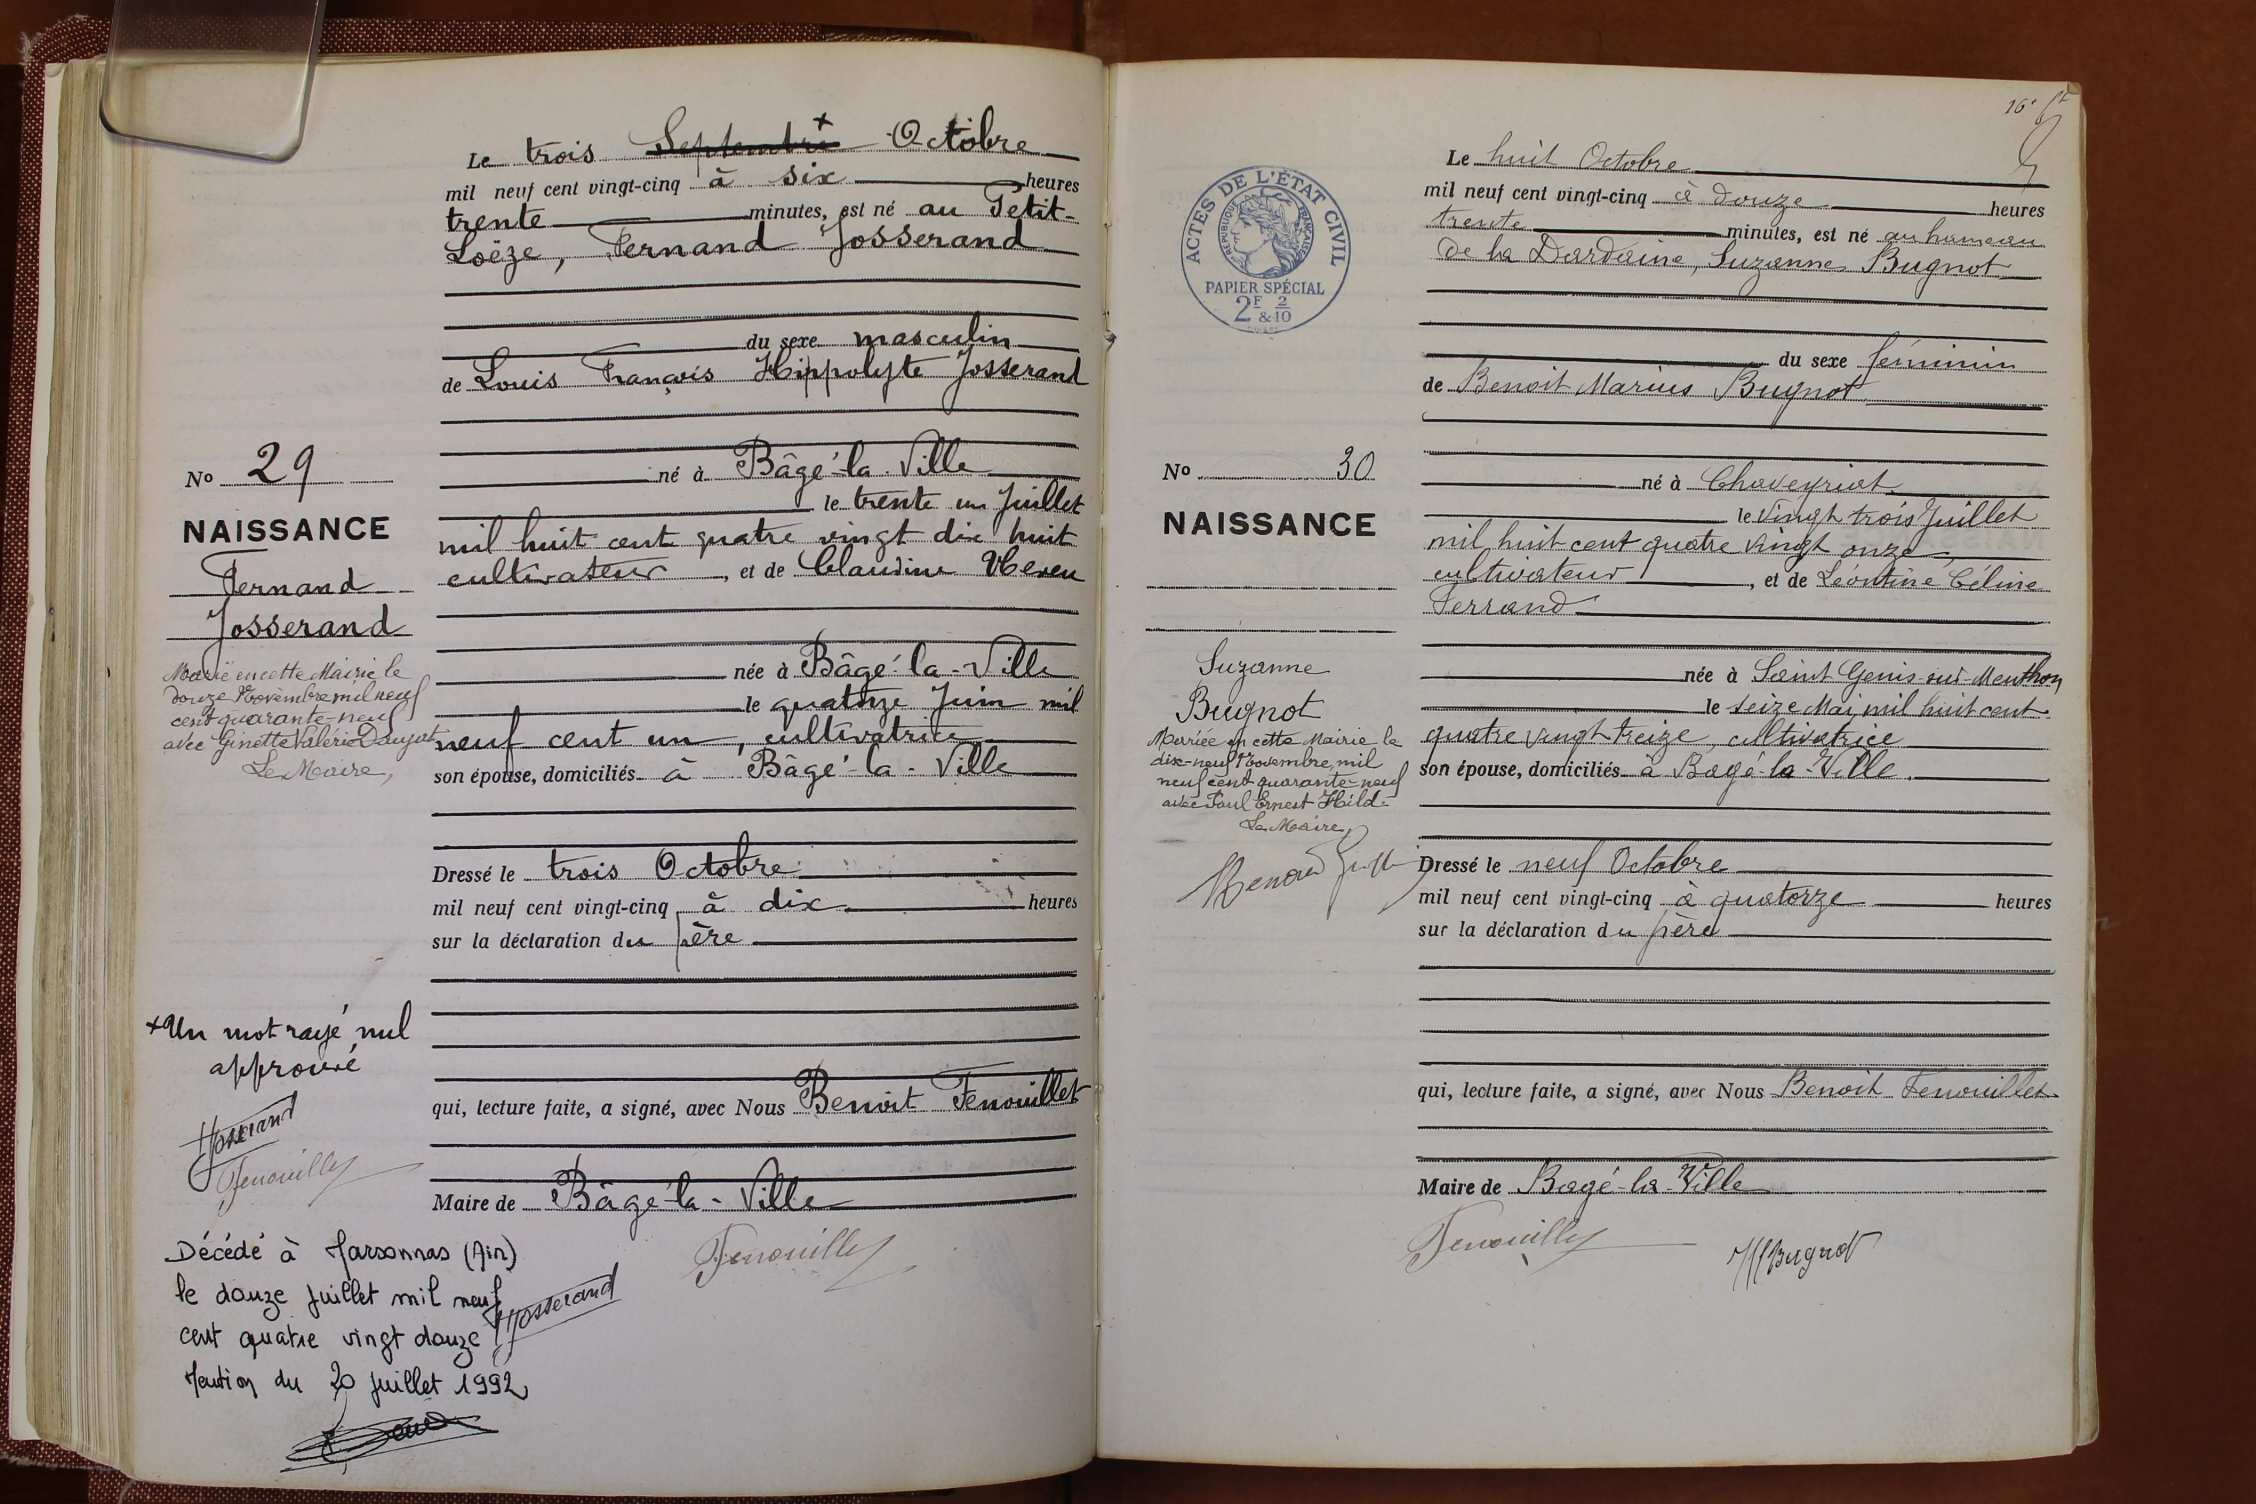 Le trois Septembre + Octobre
mil neuf cent vingt-cinq à six heures
trente minutes, est né au Petit-
Loëze, Fernand Josserand
du sexe masculin
de Louis François Hippolyte Josserand
né à Bâgé-la-Ville
le trente un Juillet
mil huit cent quatre vingt dix huit
cultivateur, et de Claudine
née à Bâgé-la-Ville
le quatorze Juin mil
neuf cent un, cultivatrice
son épouse, domiciliés à Bâgé-la-Ville
Dressé le trois Octobre
mil neuf cent vingt-cinq à dix heures
sur la déclaration du père
qui, lecture faite, a signé, avec Nous Benoit Fenouillet
Maire de Bâgé-la-Ville
Fenouillet
Josserand
No 29
NAISSANCE
Fernand
Josserand
Marié en cette Mairie le
douze Novembre mil neuf
cent quarante-neuf
avec Ginette Valérie Daujat
Le Maire,
+ Un mot rayé nul
approuvé
Josserand
Fenouillet
Décédé à Marsonnas (Ain)
le douze juillet mil neuf
cent quatre vingt douze
Mention du 20 juillet 1992
16e
ACTES DE L'ÉTAT CIVIL
RÉPUBLIQUE FRANÇAISE
PAPIER SPÉCIAL
2F & 2/10
Le huit Octobre
mil neuf cent vingt-cinq à douze heures
trente minutes, est né au hameau
de la Dardaine, Suzanne Bugnot
du sexe féminin
de Benoit Marius Bugnot
né à Chaveyriat
le vingt trois Juillet
mil huit cent quatre vingt onze
cultivateur, et de Léontine Céline
Ferrand
née à Saint Genis-sur-Menthon
le seize Mai mil huit cent
quatre vingt treize, cultivatrice
son épouse, domiciliés à Bagé-la-Ville.
Dressé le neuf Octobre
mil neuf cent vingt-cinq à quatorze heures
sur la déclaration du père
qui, lecture faite, a signé, avec Nous Benoit Fenouillet
Maire de Bagé-la-Ville
Fenouillet
Bugnot
No 30
NAISSANCE
Suzanne
Bugnot
Mariée en cette Mairie le
dix-neuf Novembre mil
neuf cent quarante-neuf
avec Paul Ernest Hild-
Le Maire,